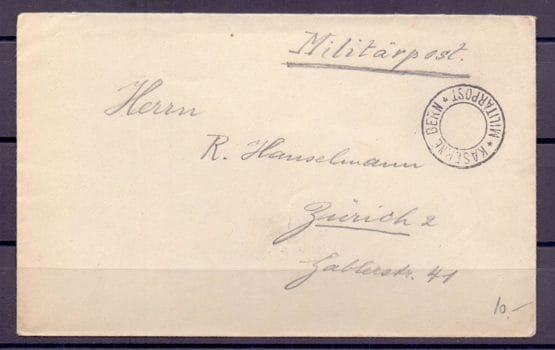 Militärpost.
KASERNE BERN * MILITÄRPOST *
Herrn
R. Hanselmann
Zürich 2
Gablerstr. 41
10.-